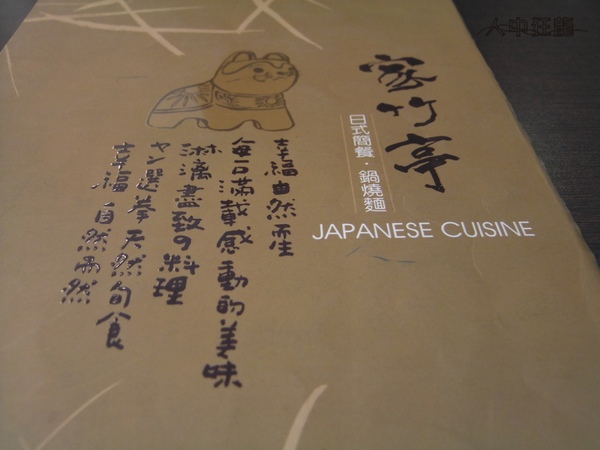 竹亭
日式簡餐·鍋燒麵
JAPANESE CUISINE
幸福自然而生
每口滿載感動的美味
淋漓盡致の料理
ヤン選 天然旬食
幸福自然而然